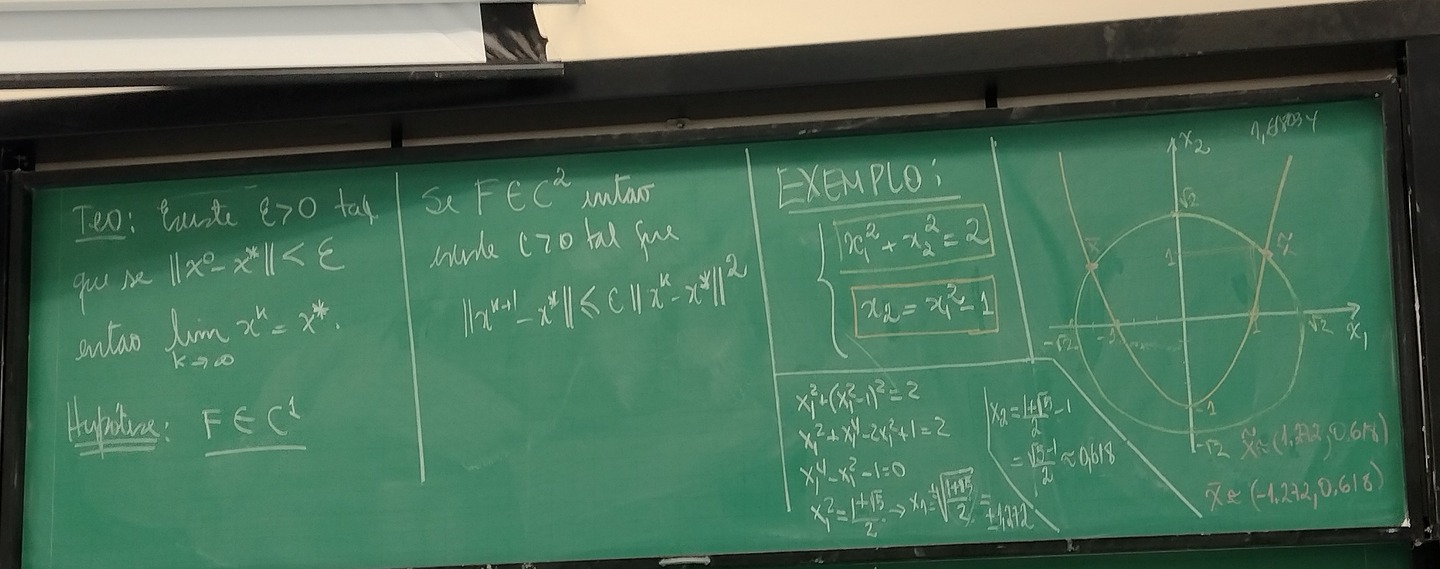 Teo: Existe ε>0 tal
que se ||x⁰-x*|| < ε
então lim x^k = x*.
k→∞
Hipótese: F ∈ C¹
Se F ∈ C² então
existe C>0 tal que
||x^{k+1} - x*|| ≤ C ||x^k - x*||²
EXEMPLO:
x₁² + x₂² = 2
x₂ = x₁² - 1
x₁² + (x₁² - 1)² = 2
x₁² + x₁⁴ - 2x₁² + 1 = 2
x₁⁴ - x₁² - 1 = 0
x₁² = (1+√5)/2 → x₁ = ±√((1+√5)/2) = ±1,272
x₂ = (1+√5)/2 - 1
= (√5-1)/2 ≈ 0,618
1,618034
x₂
√2
x̄
1
x̃
-√2
-1
1
√2
x₁
-1
-√2
x̃ ≈ (1,272, 0,618)
x̄ ≈ (-1,272, 0,618)